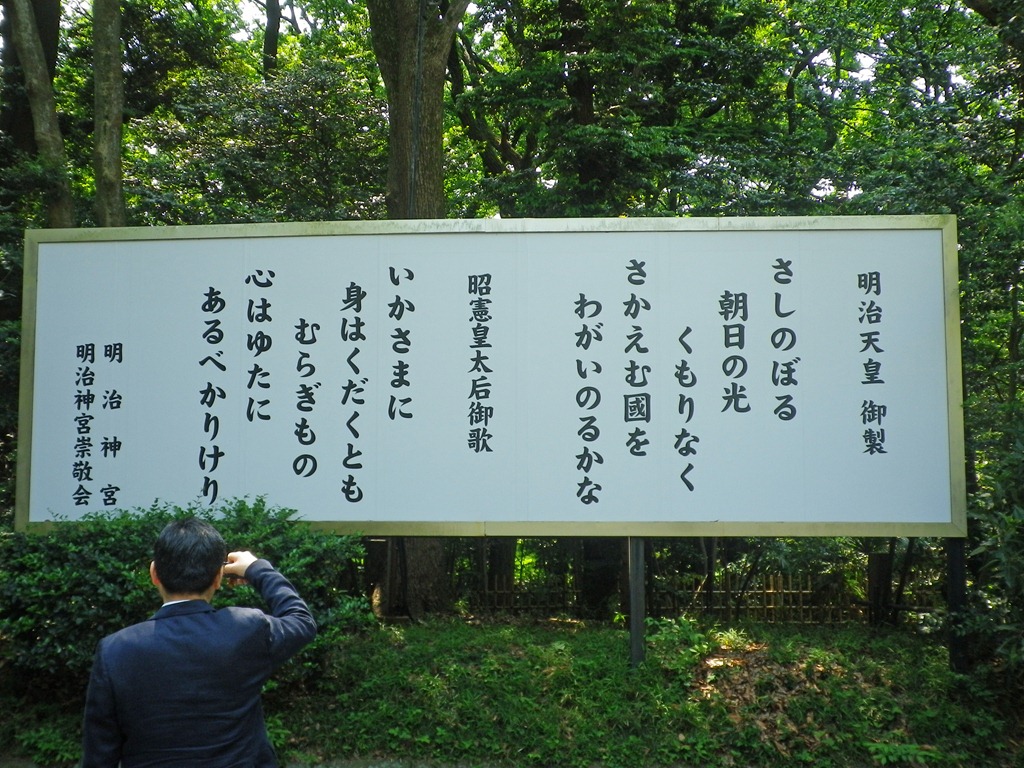 明治天皇 御製
さしのぼる
朝日の光
くもりなく
さかえむ國を
わがいのるかな
昭憲皇太后御歌
いかさまに
身はくだくとも
むらぎもの
心はゆたに
あるべかりけり
明治神宮
明治神宮崇敬会